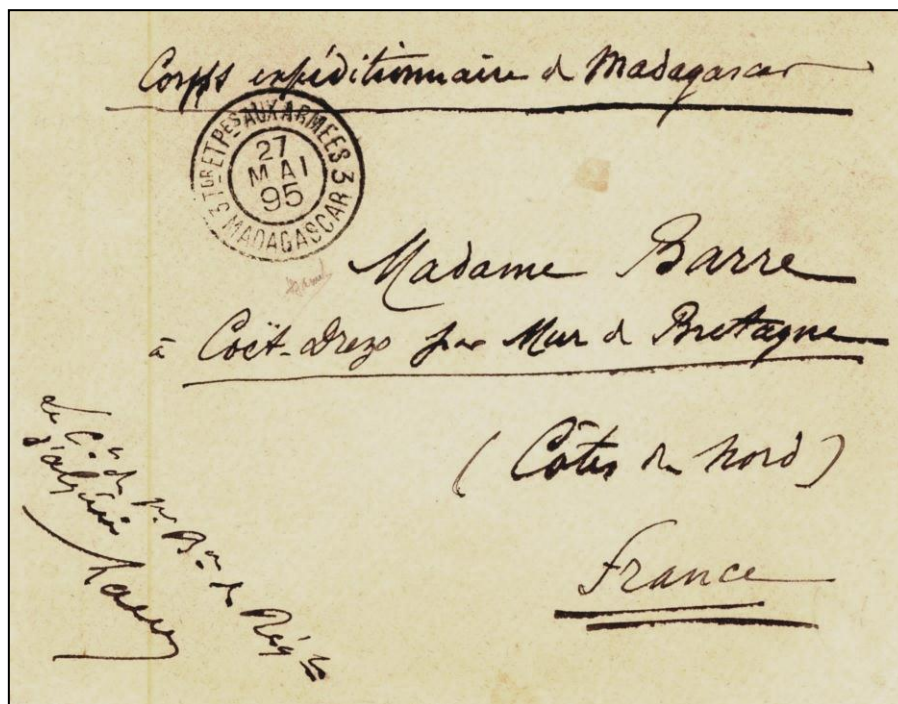 Corps expéditionnaire de Madagascar
3 TGR ET PES AUX ARMEES 3
27
MAI
95
MADAGASCAR
Madame Barre
à Coët-Drezo par Mur de Bretagne
(Côtes du Nord)
France
Le Ct du Bon de Régt
d'algérie